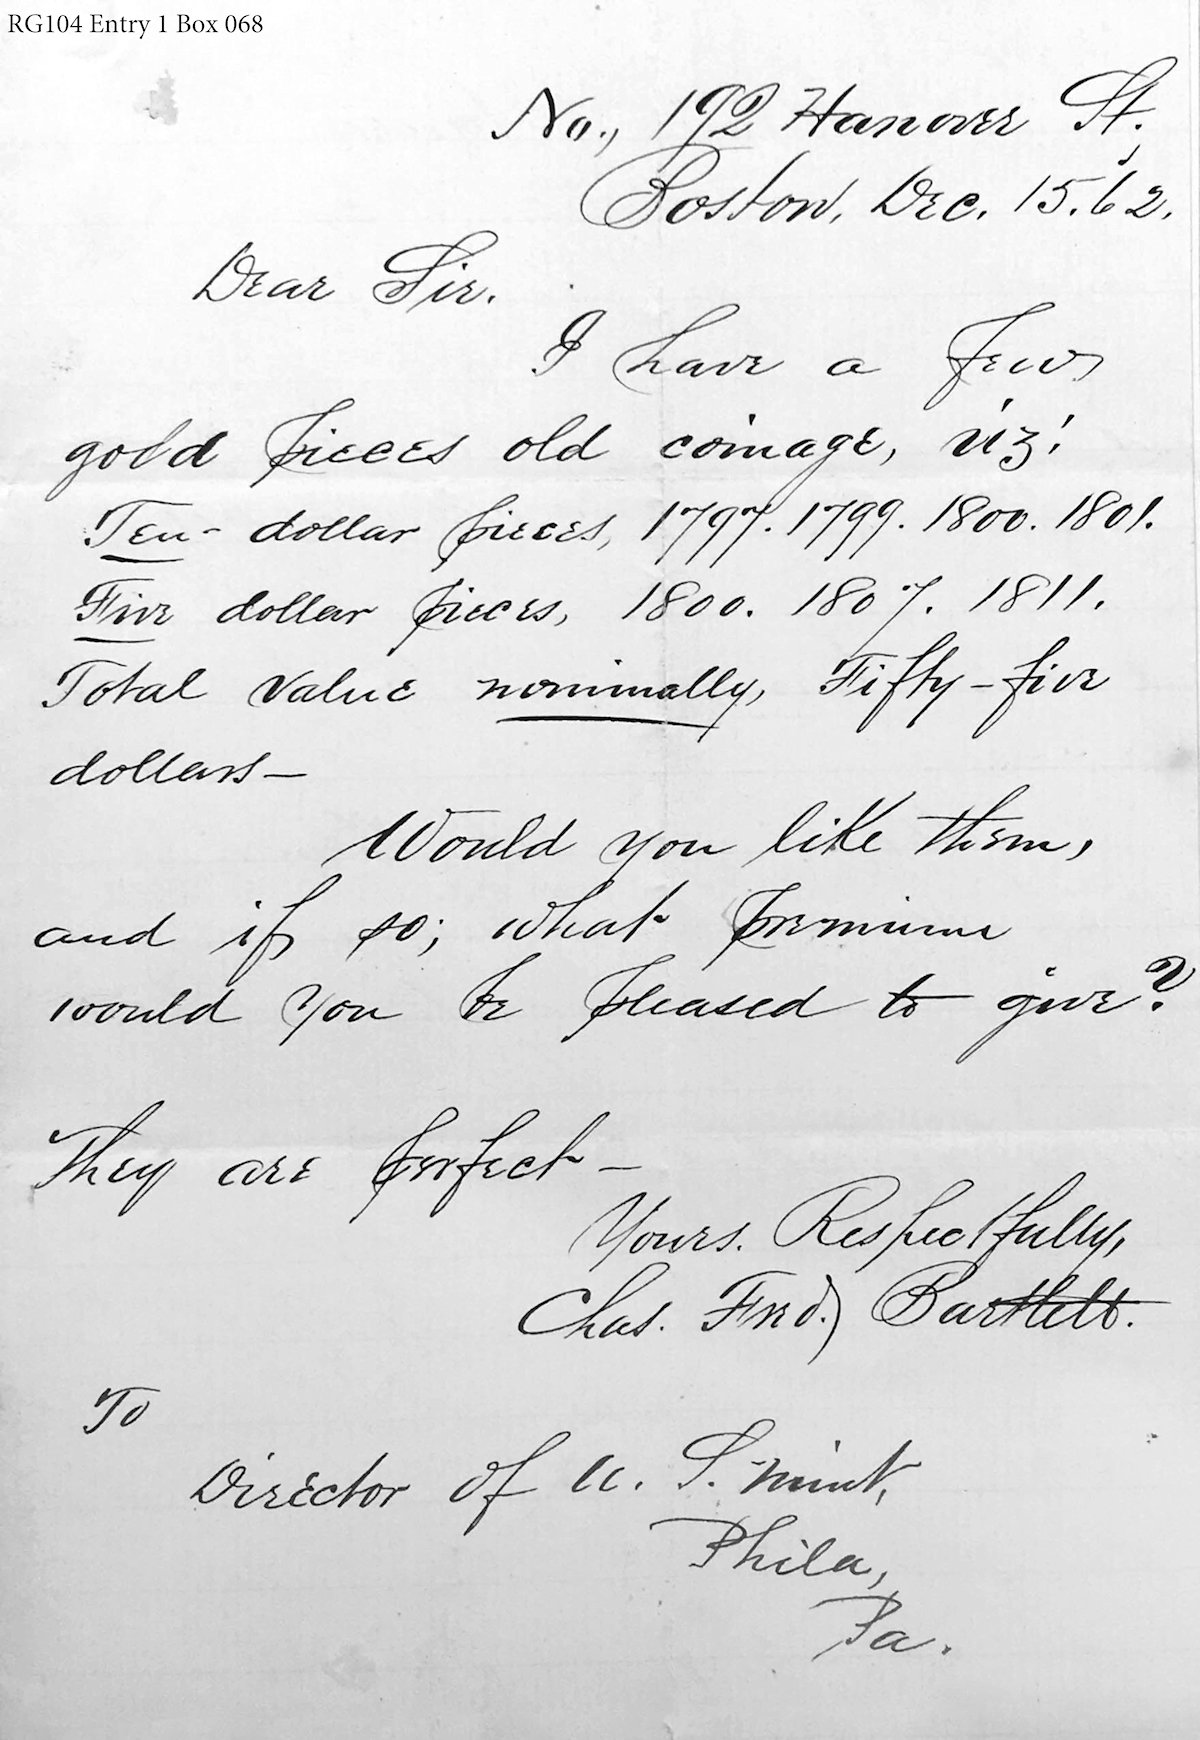 RG104 Entry 1 Box 068
No., 192 Hanover St.,
Boston, Dec. 15. 62.
Dear Sir.
I have a few
gold pieces old coinage, viz:
Ten- dollar pieces, 1797. 1799. 1800. 1801.
Five dollar pieces, 1800. 1807. 1811.
Total value nominally, Fifty-five
dollars—
Would you like them,
and if so; what premium
would you be pleased to give?
They are perfect—
Yours. Respectfully,
Chas. Fred. Bartlett.
To
Director of U. S. Mint,
Phila,
Pa.